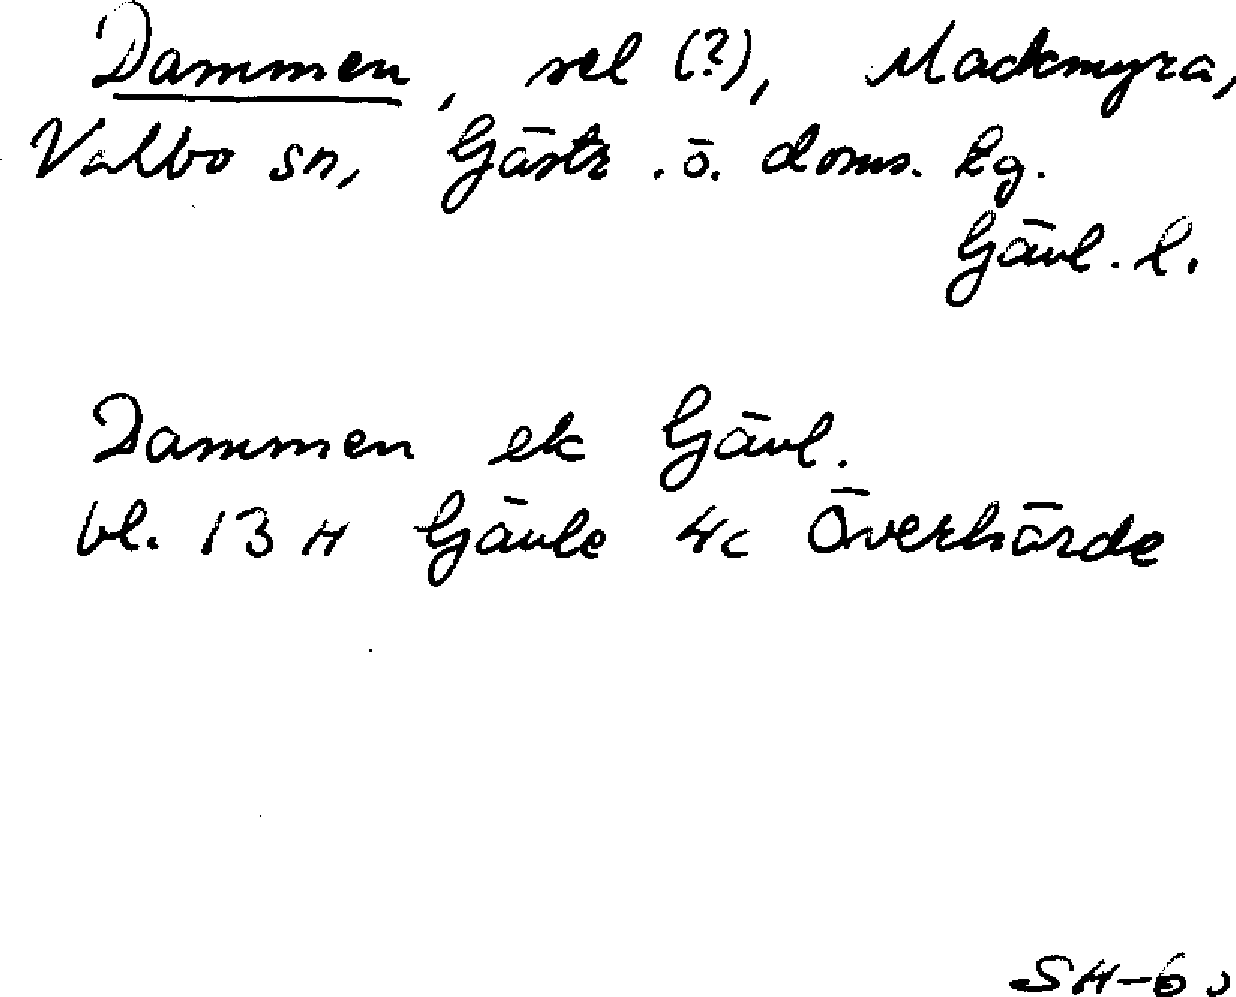 Dammen, sel (?), Mackmyra,
Valbo sn, Gästr. ö. doms. kg.
Gävl. l.
Dammen ek Gävl.
bl. 13 H Gävle 4c Överhärde
SH-6